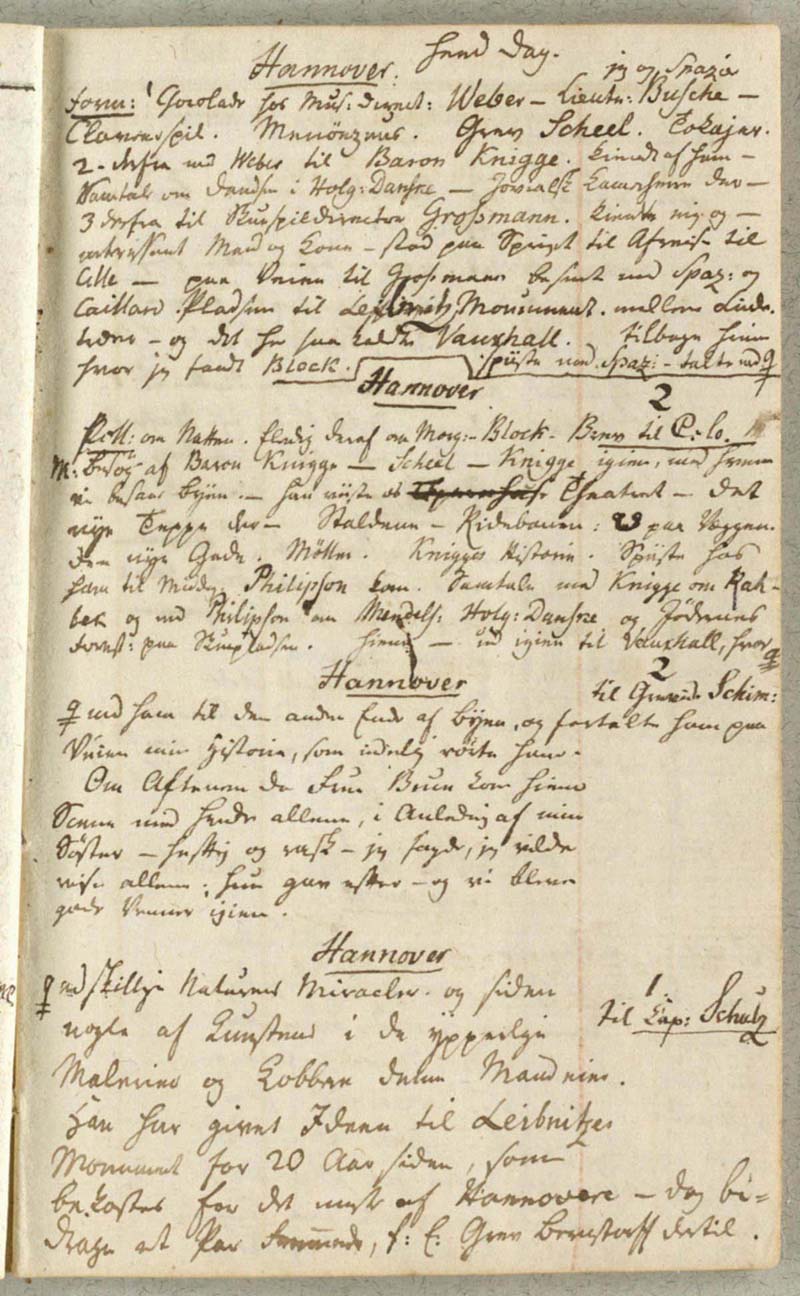 Hannover. hend Day.
jeg og Spazie
Form: Chocolade hos Mus: Direct: Weber — Lieutn: Busche —
Claveerspil. Grev Scheel. Tokajer.
2. derfra med Weber til Baron Knigge. kiendt af ham —
Samtale om Dandsen i Holg: Danske — Jovialsk der —
3 derfra til Skuespildirecteur Grosmann. kiendte mig og —
interessant Mand og Kone — stod paa Springet til Afreise til
Celle — paa Veien til Grosmann besøgt med Spaz: og
Caillard. Pladsen til Leibnitz Monument. mellem Linde-
træer — og det her saa kaldte Vauxhall. tilbage hiem
hvor jeg fandt Block. spiiste med Spaz: — talte med ♀
Hannover 2
Poll: om Natten. Elendig deraf om Morg: — Block — Brev til C: Lo.
M: Besøg af Baron Knigge — Scheel — Knigge igien, med hvem
vi besaae Byen. — han viiste os Theatret — det
nye Teppe der — Staldene — Ridebanen: paa Væggen.
den nye Gade. Møllen. Knigges Historie. Spiiste hos
ham til Middag. Philipson kom. Samtale med Knigge om Rah-
bek og med Philipson om Mendels: Holg: Danske og Jødernes
Forest: paa Skuepladsen. hiem — ud igien til Vauxhall, hvor ♀
Hannover 2
til Grevinde Schim:
♀ med ham til den anden Ende af Byen, og fortalte ham paa
Veien min Historie, som inderlig rørte ham.
Om Aftenen da Frue Brun kom hiem
Scene med hende allene, i Anledning af min
Søster — heftig og rask — jeg sagde, jeg vilde
reise allene; hun gav efter — og vi bleve
gode Venner igien.
Hannover
♀ adskillige Naturens Miracler. og siden
1.
til Cap: Schulz
nogle af Kunstens i de ypperlige
Malerier og Kobbere denne Mand eier.
Han har givet Ideen til Leibnitzes
Monument for 20 Aar siden, som
bekostes for det meste af Hannovere — dog bi-
drage et Par Fremmede, f: E: Grev Bernstorff dertil.